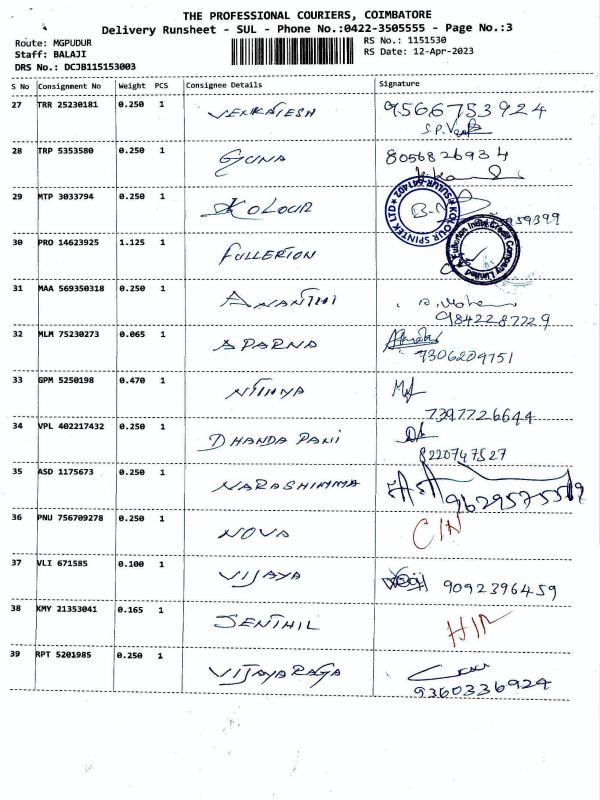 THE PROFESSIONAL COURIERS, COIMBATORE
Delivery Runsheet - SUL - Phone No.:0422-3505555 - Page No.:3
Route: MGPUDUR
RS No.: 1151530
Staff: BALAJI
RS Date: 12-Apr-2023
DRS No.: DCJB115153003
S No Consignment No Weight PCS Consignee Details Signature
27 TRR 25230181 0.250 1 VENKATESH 9566753924
28 TRP 5353580 0.250 1 GUNA 8056826934
29 MTP 3033794 0.250 1 KOLOUR
KOLOUR SPINTEK LTD ★ SULUR-641402 ★
30 PRO 14623925 1.125 1 FULLERTON
Fullerton India Credit Company Limited
31 MAA 569350318 0.250 1 ANANTHI
9842287229
32 MLM 75230273 0.065 1 APARNA
7306209751
33 GPM 5250198 0.470 1 NITHYA
7397726644
34 VPL 402217432 0.250 1 DHANDAPANI
8220747527
35 ASD 1175673 0.250 1 NARASHIMMA
36 PNU 756709278 0.250 1 NOVA C/N
37 VLI 671585 0.100 1 VIJAYA 9092396459
38 KMY 21353041 0.165 1 SENTHIL
39 RPT 5201985 0.250 1 VIJAYARAGA
9360336924